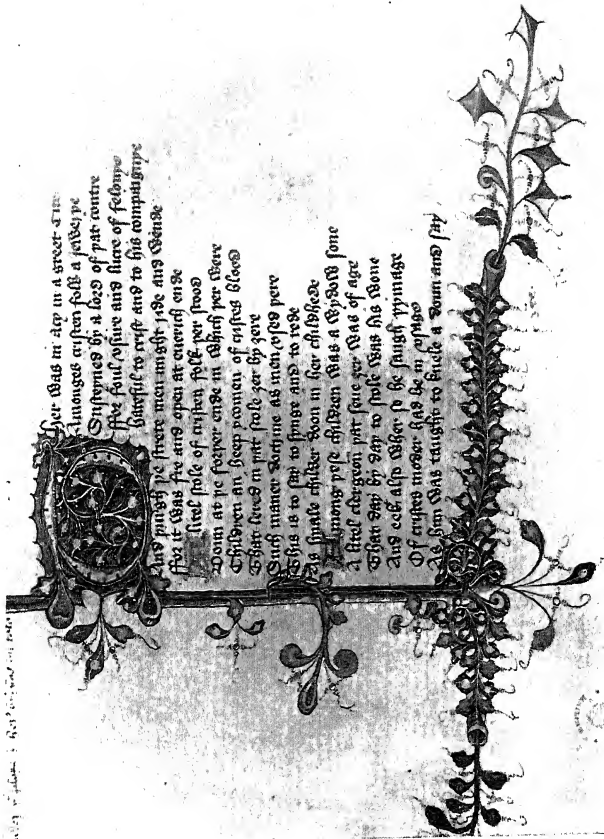 her was in acy in a greet citee
Amonges cristen folk a jewerye
Susteyned by a lord of þat contre
ffor foul vsure and lucre of felonye
hateful to crist and to his compaignye
And þurgh þe strete men might ride and wende
ffor it was fre and open at euerich ende
A litel scole of cristen folk þer stood
Doun at þe forþer ende in which þer were
Children an heep ycomen of cristes blood
That lered in þat scole ȝer by ȝere
Such maner doctrine as men vsed þere
This is to say to singe and to rede
As smale childer doon in her childhede
Among þese children was a wydow sone
A litel clergeoun þat seue ȝer was of age
That day by day to scole was his wone
And eek also wher so he saugh þymage
Of cristes moder had he in vsage
As him was taught to knele a doun and say